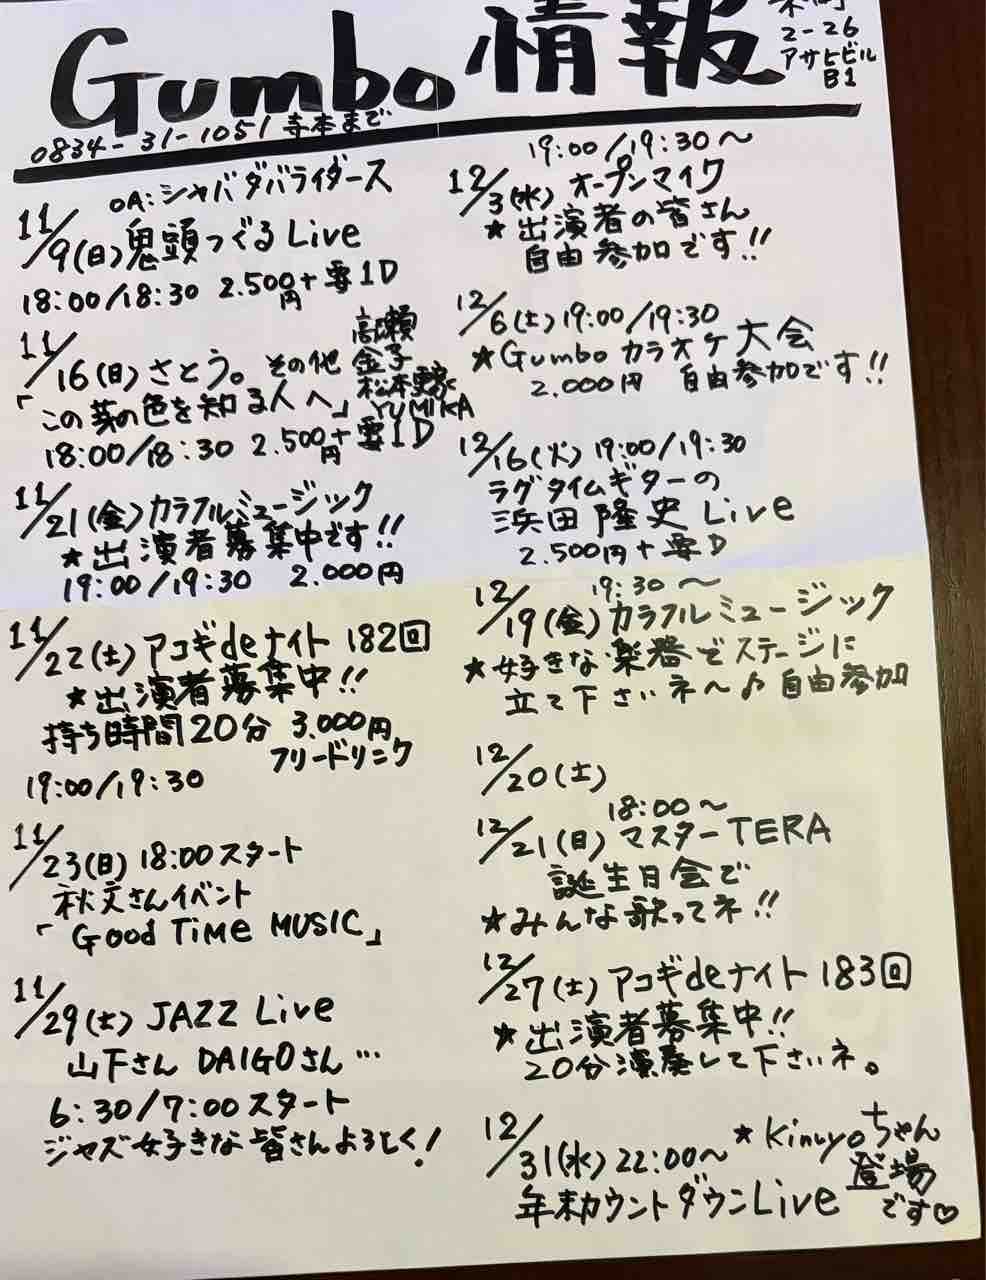 Gumbo 情報
2-26
アサヒビル
B1
0834-31-1051 寺本まで
OA:シャバダバライダース
11/9(日)鬼頭つぐるLive
18:00/18:30 2.500円+要1D
11/16(日)さとう。その他 高瀬
金子
松本
YUMIKA
「この芽の色を知る人へ」
18:00/18:30 2.500円+要1D
11/21(金)カラフルミュージック
★出演者募集中です!!
19:00/19:30 2.000円
11/22(土)アコギdeナイト 182回
★出演者募集中!!
持ち時間20分 3.000円
フリードリンク
19:00/19:30
11/23(日)18:00スタート
秋文さんイベント
「Good Time MUSIC」
11/29(土)JAZZ Live
山下さん DAIGOさん…
6:30/7:00スタート
ジャズ好きな皆さんよろしく!
19:00/19:30〜
12/3(水)オープンマイク
★出演者の皆さん
自由参加です!!
12/6(土)19:00/19:30
★Gumboカラオケ大会
2.000円 自由参加です!!
12/16(火)19:00/19:30
ラグタイムギターの
浜田隆史Live
2.500円+要D
19:30〜
12/19(金)カラフルミュージック
★好きな楽器でステージに
立て下さいネ〜♪自由参加
12/20(土)
18:00〜
12/21(日)マスターTERA
誕生日会で
★みんな歌ってネ!!
12/27(土)アコギdeナイト183回
★出演者募集中!!
20分演奏して下さいネ。
12/31(水)22:00〜 ★Kinuyoちゃん
登場
です♡
年末カウントダウンLive